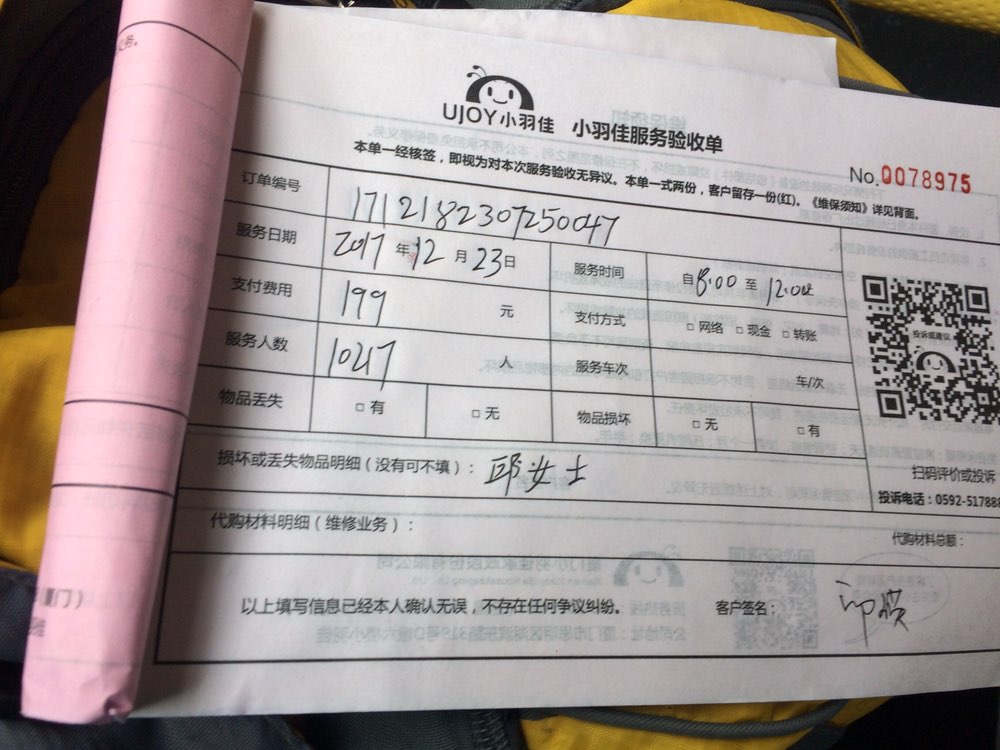 义务。
UJOY小羽佳 小羽佳服务验收单
本单一经核签，即视为对本次服务验收无异议。本单一式两份，客户留存一份(红)。《维保须知》详见背面。
No.0078975
订单编号 1712182307250047
服务日期 2017年12月23日 服务时间 自8:00至12:00
支付费用 199 元 支付方式 □网络 □现金 □转账
服务人数 10217 人 服务车次 车/次
物品丢失 □有 □无 物品损坏 □无 □有
投诉或建议
扫码评价或投诉
投诉电话：0592-51788
损坏或丢失物品明细（没有可不填）： 邱女士
代购材料明细（维修业务）： 代购材料总额：
以上填写信息已经本人确认无误，不存在任何争议纠纷。 客户签名：
厦门）